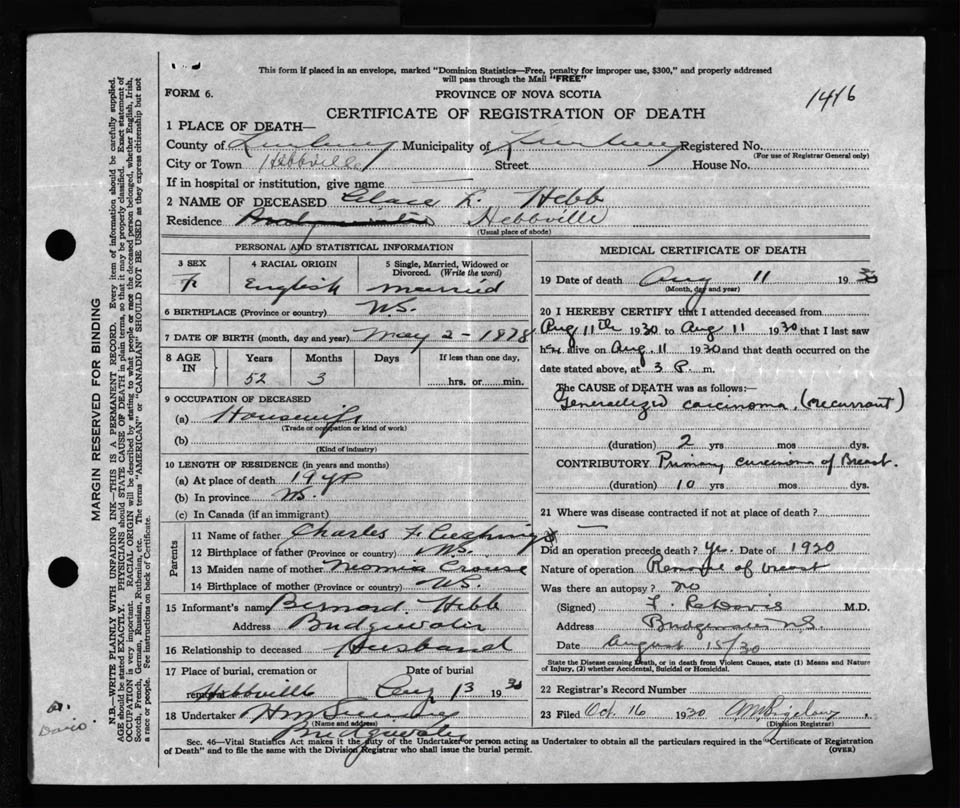 This form if placed in an envelope, marked "Dominion Statistics—Free, penalty for improper use, $300," and properly addressed
will pass through the Mail "FREE"
FORM 6.
PROVINCE OF NOVA SCOTIA
1416
CERTIFICATE OF REGISTRATION OF DEATH
1 PLACE OF DEATH—
County of Lunenburg Municipality of Lunenburg Registered No.
(For use of Registrar General only)
City or Town Hebbville Street House No.
If in hospital or institution, give name
2 NAME OF DECEASED L. Hebb
Residence Bridgewater Hebbville
(Usual place of abode)
PERSONAL AND STATISTICAL INFORMATION
3 SEX 4 RACIAL ORIGIN 5 Single, Married, Widowed or Divorced. (Write the word)
F English married
6 BIRTHPLACE (Province or country) NS.
7 DATE OF BIRTH (month, day and year) May 2 - 1878
8 AGE IN Years Months Days If less than one day,
52 3 hrs. or min.
9 OCCUPATION OF DECEASED
(a) Housewife
(Trade or occupation or kind of work)
(b)
(Kind of industry)
10 LENGTH OF RESIDENCE (in years and months)
(a) At place of death 19 yr
(b) In province NS.
(c) In Canada (if an immigrant)
Parents
11 Name of father Charles F.
12 Birthplace of father (Province or country) NS.
13 Maiden name of mother Crouse
14 Birthplace of mother (Province or country) NS.
15 Informant's name Bernard Hebb
Address Bridgewater
16 Relationship to deceased Husband
17 Place of burial, cremation or removal Date of burial
Hebbville Aug 13 1930
18 Undertaker
(Name and address)
Bridgewater
MEDICAL CERTIFICATE OF DEATH
19 Date of death Aug 11 1930
(Month, day and year)
20 I HEREBY CERTIFY that I attended deceased from
Aug 11th 1930 to Aug 11 1930 that I last saw
her alive on Aug. 11 1930 and that death occurred on the
date stated above, at 3 P. m.
The CAUSE OF DEATH was as follows:—
Generalized carcinoma, (recurrant)
(duration) 2 yrs mos dys.
CONTRIBUTORY Primary carcinoma of Breast.
(duration) 10 yrs mos dys.
21 Where was disease contracted if not at place of death?
Did an operation precede death? Yes. Date of 1920
Nature of operation Removal of breast
Was there an autopsy? no
(Signed) Davis M.D.
Address Bridgewater N.S.
Date August 15/30
State the Disease causing Death, or in death from Violent Causes, state (1) Means and Nature
of Injury, (2) whether Accidental, Suicidal or Homicidal.
22 Registrar's Record Number
23 Filed Oct. 16 1930
(Division Registrar)
Sec. 46—Vital Statistics Act makes it the duty of the Undertaker or person acting as Undertaker to obtain all the particulars required in the "Certificate of Registration
of Death" and to file the same with the Division Registrar who shall issue the burial permit.
(OVER)
MARGIN RESERVED FOR BINDING
N.B.—WRITE PLAINLY WITH UNFADING INK—THIS IS A PERMANENT RECORD. Every item of information should be carefully supplied.
AGE should be stated EXACTLY. PHYSICIANS should STATE CAUSE OF DEATH in plain terms, so that it may be properly classified. Exact statement of
OCCUPATION is very important. RACIAL ORIGIN will be described by stating to what people or race the deceased person belonged, whether English, Irish,
Scotch, French, German, Russian, Ruthenian, etc. The terms "AMERICAN" or "CANADIAN" SHOULD NOT BE USED as they express citizenship but not
a race or people. See instructions on back of Certificate.